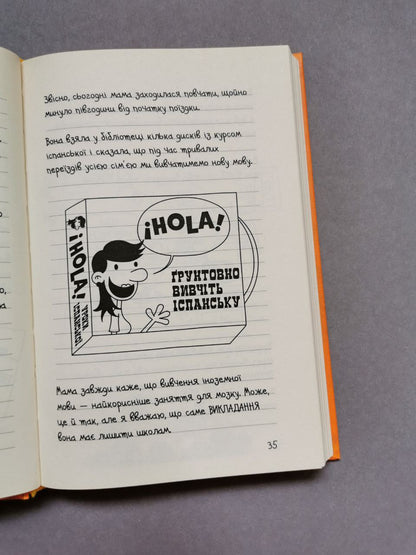 Звісно, сьогодні мама заходилася повчати, щойно
минуло півгодини від початку поїздки.
Вона взяла у бібліотеці кілька дисків із курсом
іспанської і сказала, що під час тривалих
переїздів усією сім'єю ми вивчатимемо нову мову.
¡HOLA!
¡HOLA!
ҐРУНТОВНО
ВИВЧІТЬ
ІСПАНСЬКУ
Мама завжди каже, що вивчення іноземної
мови — найкорисніше заняття для мозку. Може,
це й так, але я вважаю, що саме ВИКЛАДАННЯ
вона має лишити школам.
35